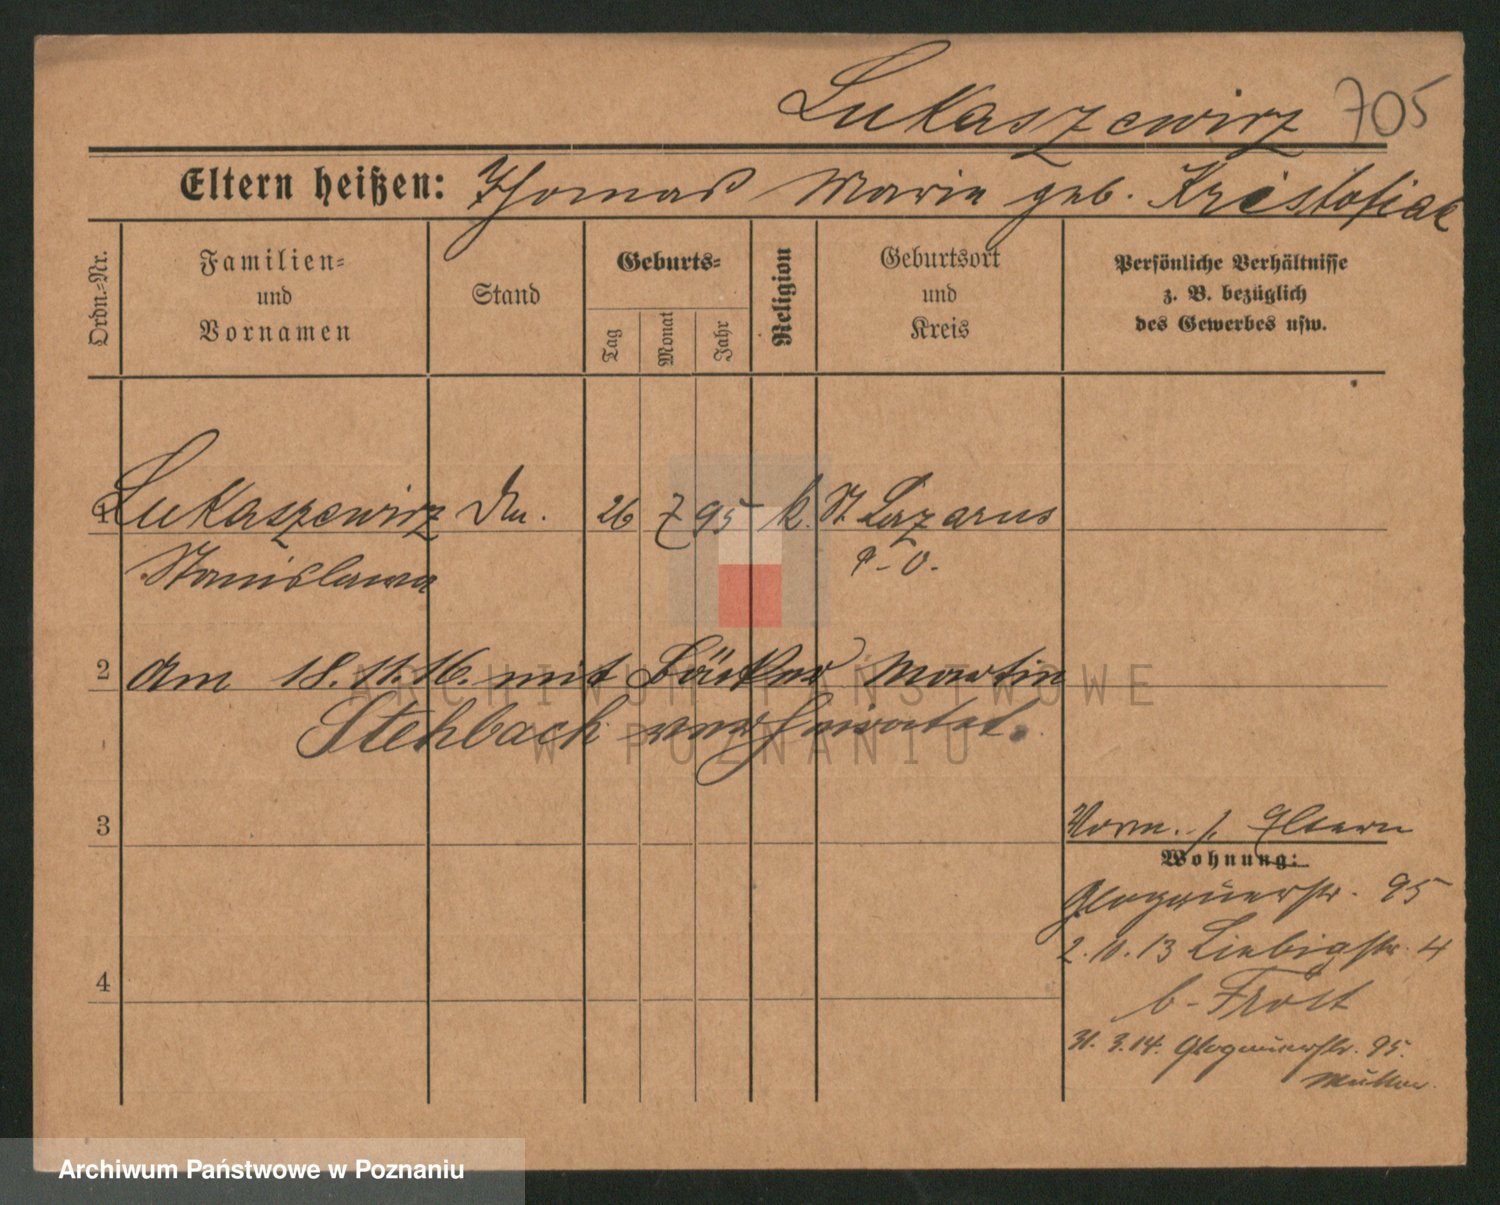 Lukaszewicz 705
Eltern heißen: Thomas Marie geb. Kristofiak
Ordn.-Nr.
Familien-
und
Vornamen
Stand
Geburts-
Tag
Monat
Jahr
Religion
Geburtsort
und
Kreis
Persönliche Verhältnisse
z. B. bezüglich
des Gewerbes usw.
1 Lukaszewicz 26 7 95 k. St. Lazarus
Stanislawa P-O.
2 Am 18.11.16. mit Bäcker Martin
Stehbach verheiratet.
3
4
Vorm. s. Eltern
Wohnung:
Glogauerstr. 95
2.10.13 Liebigstr. 4
b- Frost
31.3.14. Glogauerstr. 95.
Mutter.
ARCHIWUM PAŃSTWOWE
W POZNANIU
Archiwum Państwowe w Poznaniu